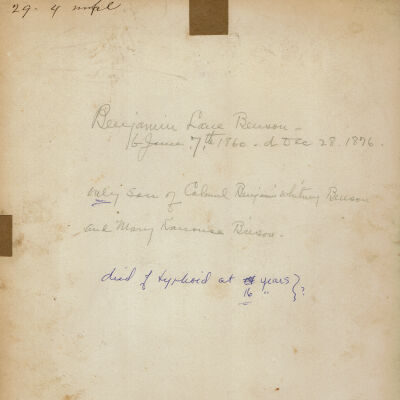 29. 4
Benjamin Lane Benson -
b June 7th 1860 - d Dec 28. 1876.
only son of Colonel Benjamin Whitney Benson
and Mary Benson.
died of typhoid at years } ?
16 "